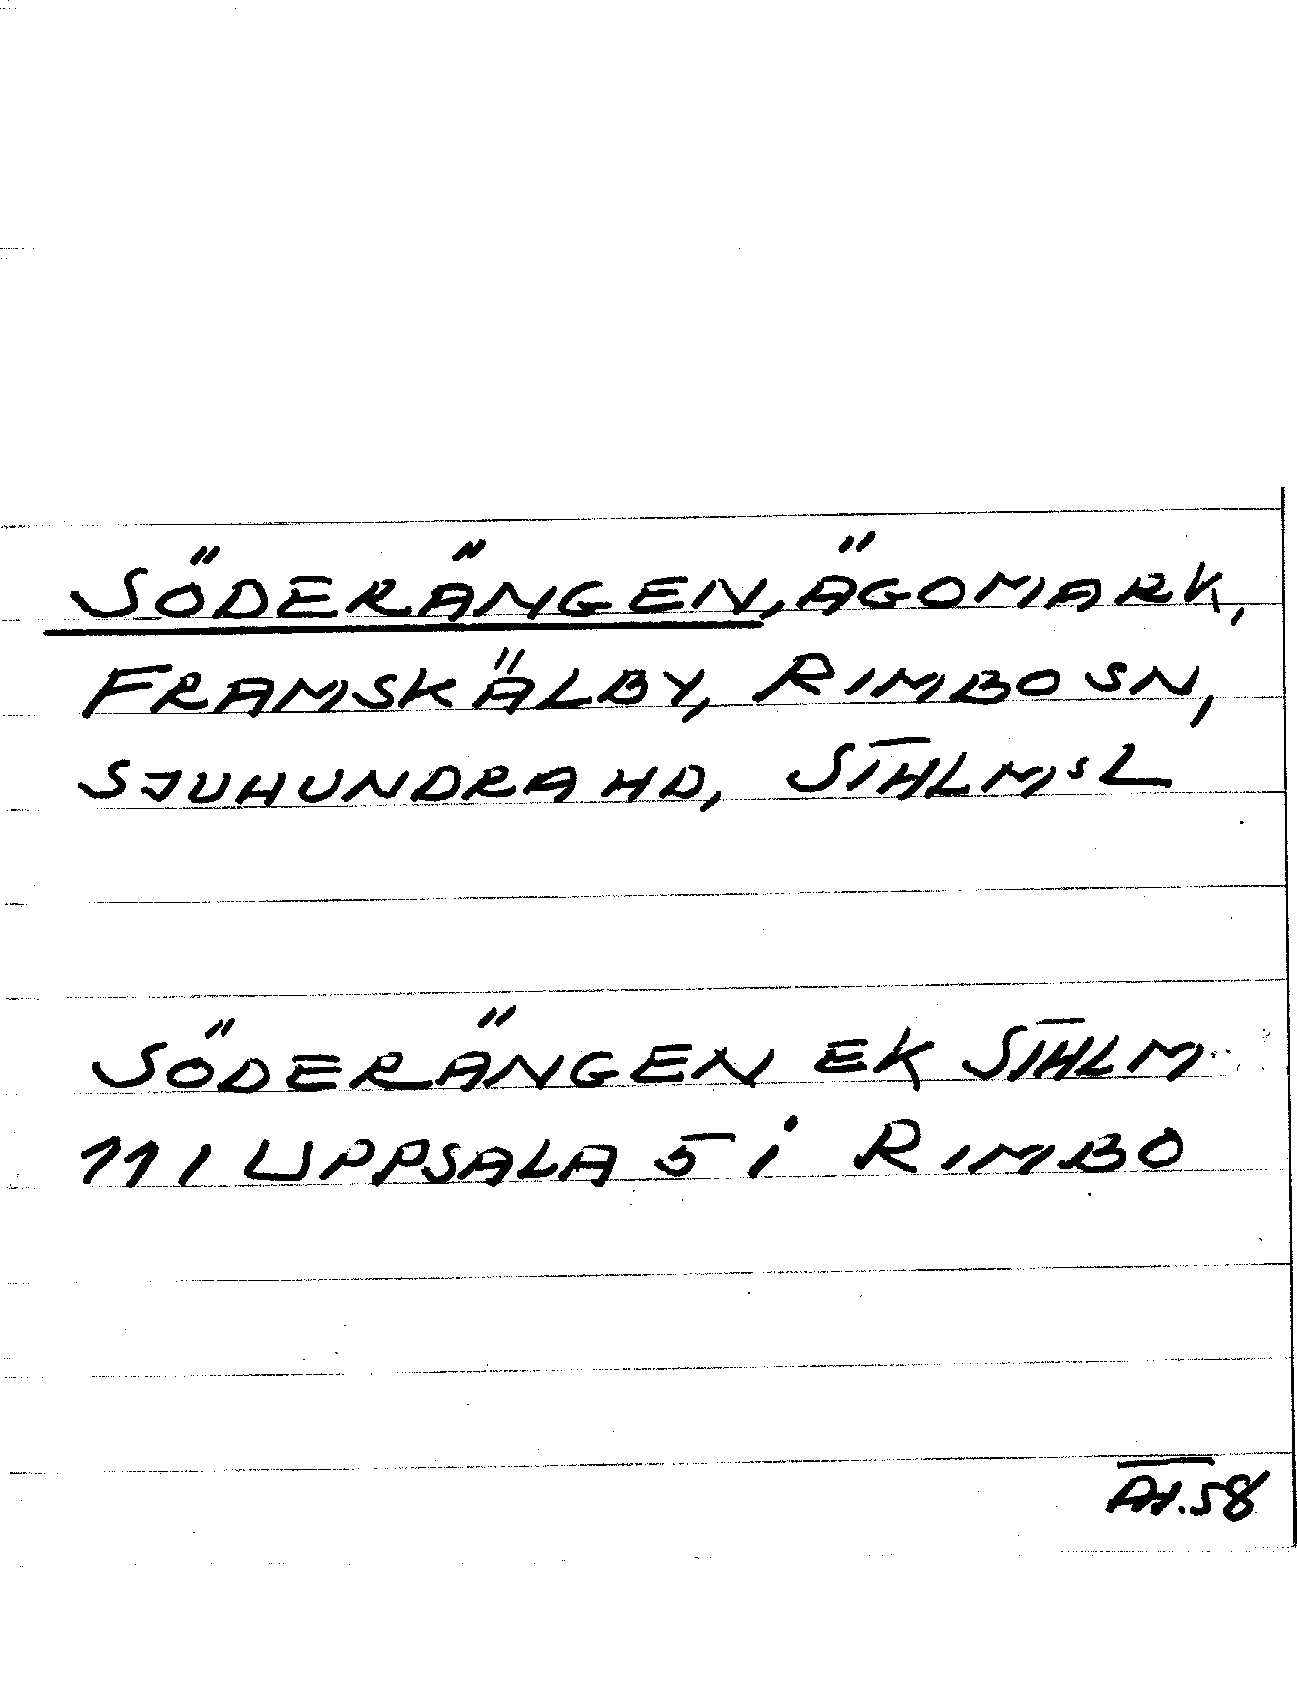 SÖDERÄNGEN, ÄGOMARK,
FRAMSKÄLBY, RIMBO SN,
SJUHUNDRA HD, STHLMS L
SÖDERÄNGEN EK STHLM
111 UPPSALA 5 i RIMBO
AH.58